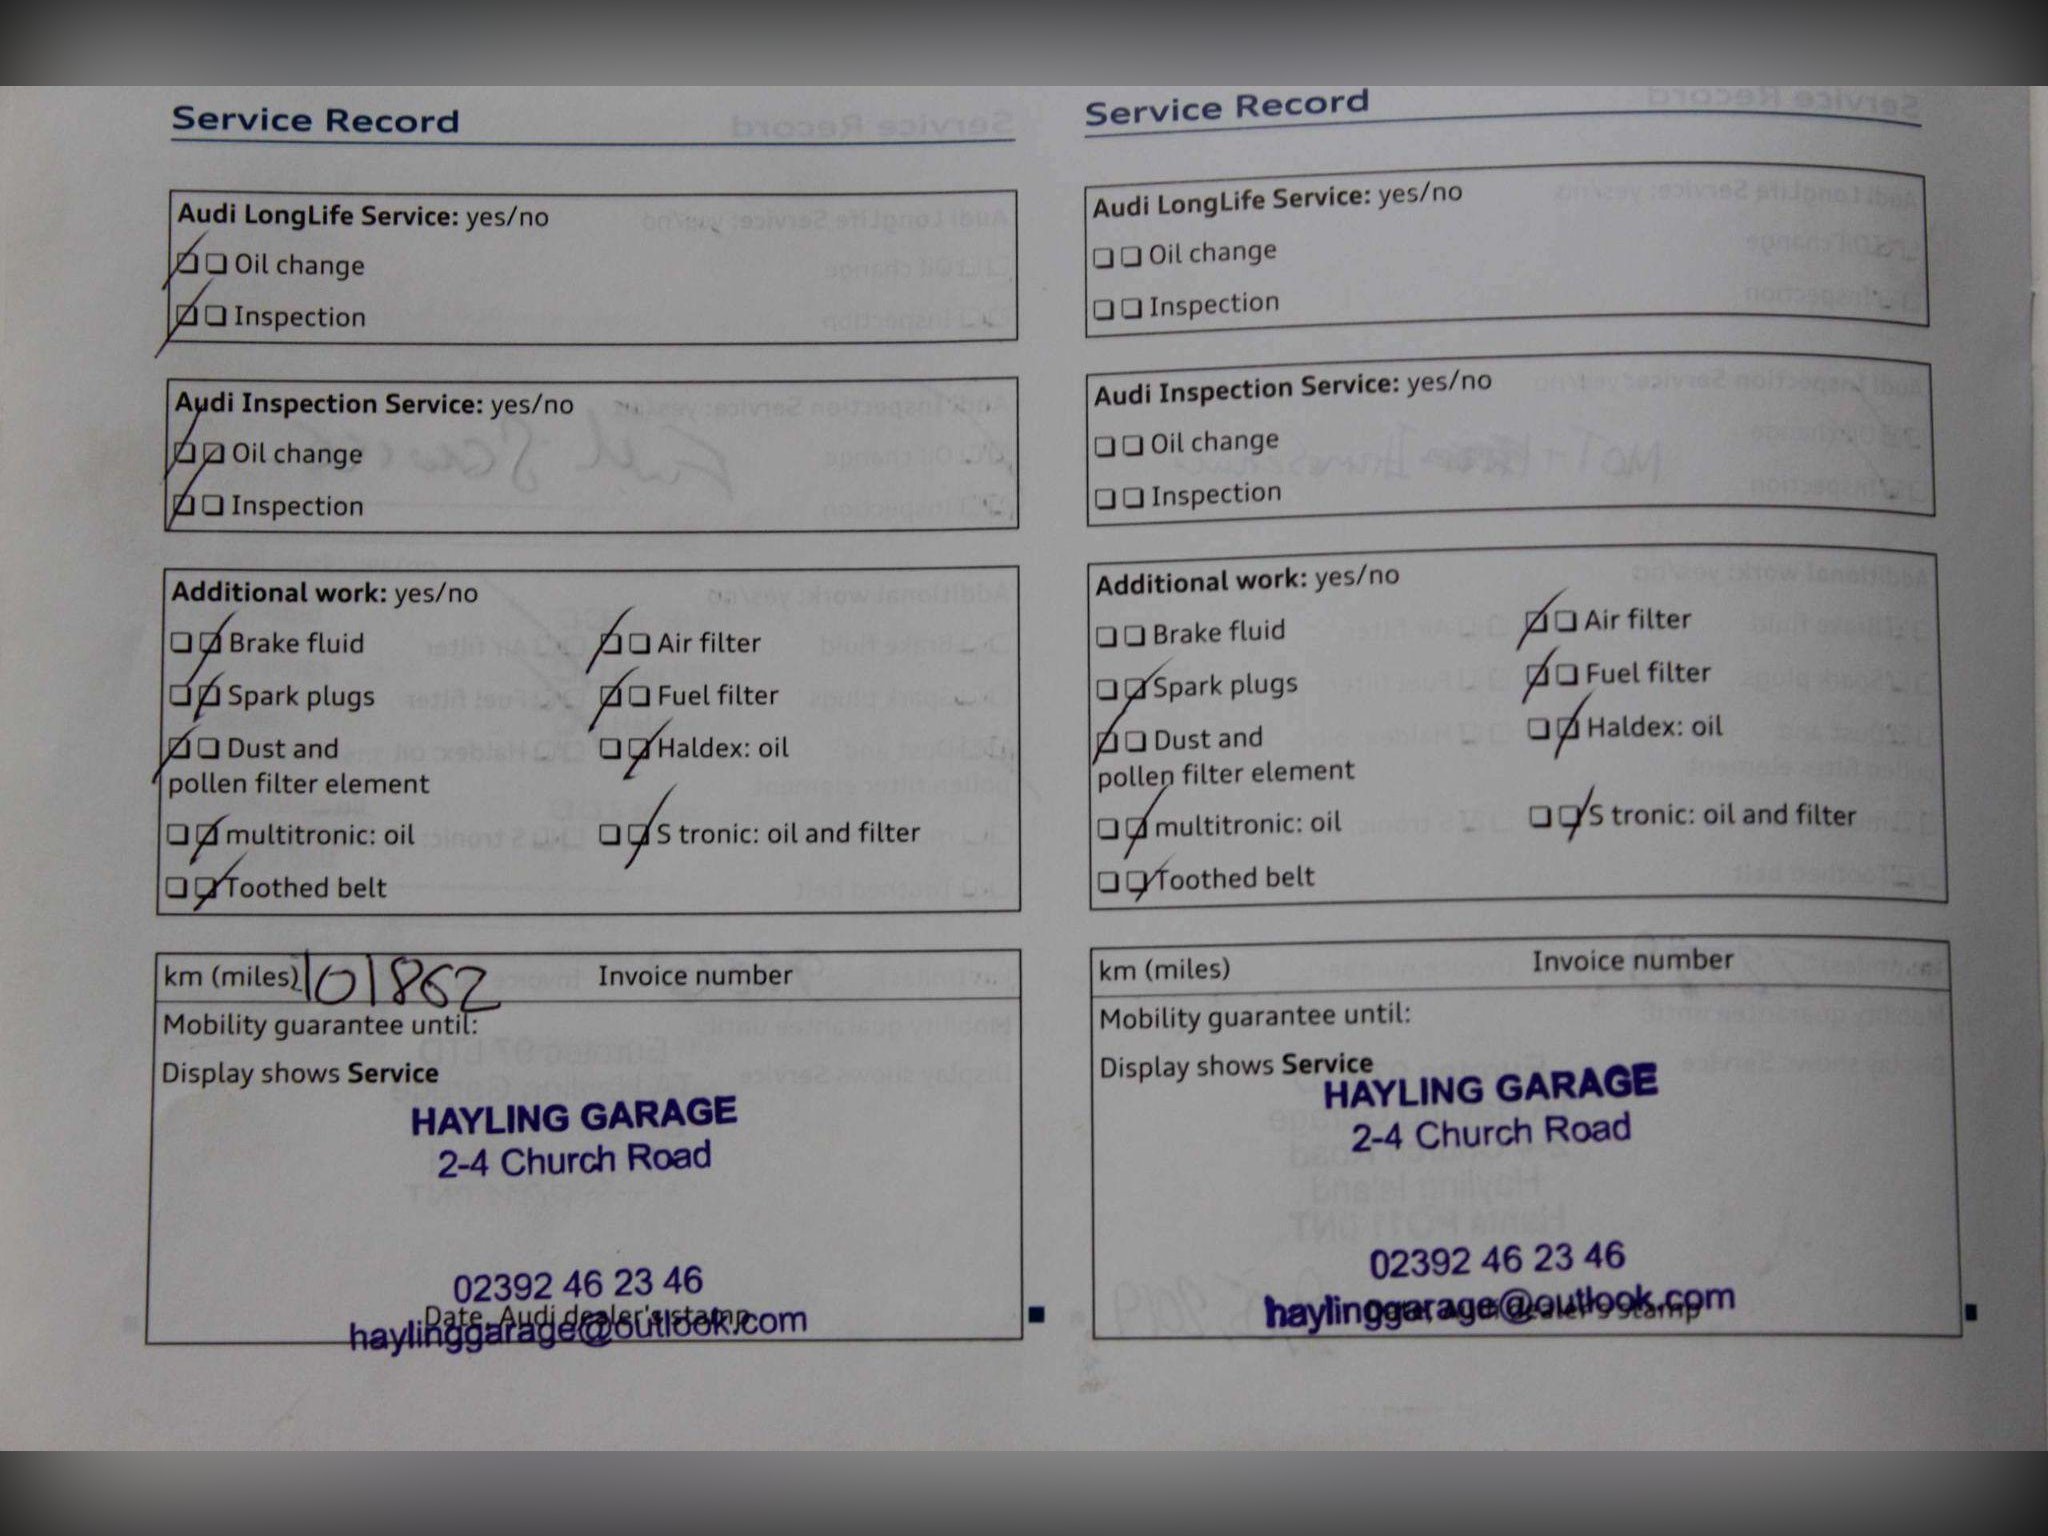 Service Record
Audi LongLife Service: yes/no
Oil change
Inspection
Audi Inspection Service: yes/no
Oil change
Inspection
Additional work: yes/no
Brake fluid
Air filter
Spark plugs
Fuel filter
Dust and
pollen filter element
Haldex: oil
multitronic: oil
S tronic: oil and filter
Toothed belt
km (miles) 101862
Invoice number
Mobility guarantee until:
Display shows Service
HAYLING GARAGE
2-4 Church Road
02392 46 23 46
Date, Audi dealer's stamp
haylinggarage@outlook.com
Service Record
Audi LongLife Service: yes/no
Oil change
Inspection
Audi Inspection Service: yes/no
Oil change
Inspection
Additional work: yes/no
Brake fluid
Air filter
Spark plugs
Fuel filter
Dust and
pollen filter element
Haldex: oil
multitronic: oil
S tronic: oil and filter
Toothed belt
km (miles)
Invoice number
Mobility guarantee until:
Display shows Service
HAYLING GARAGE
2-4 Church Road
02392 46 23 46
haylinggarage@outlook.com
dealer's stamp